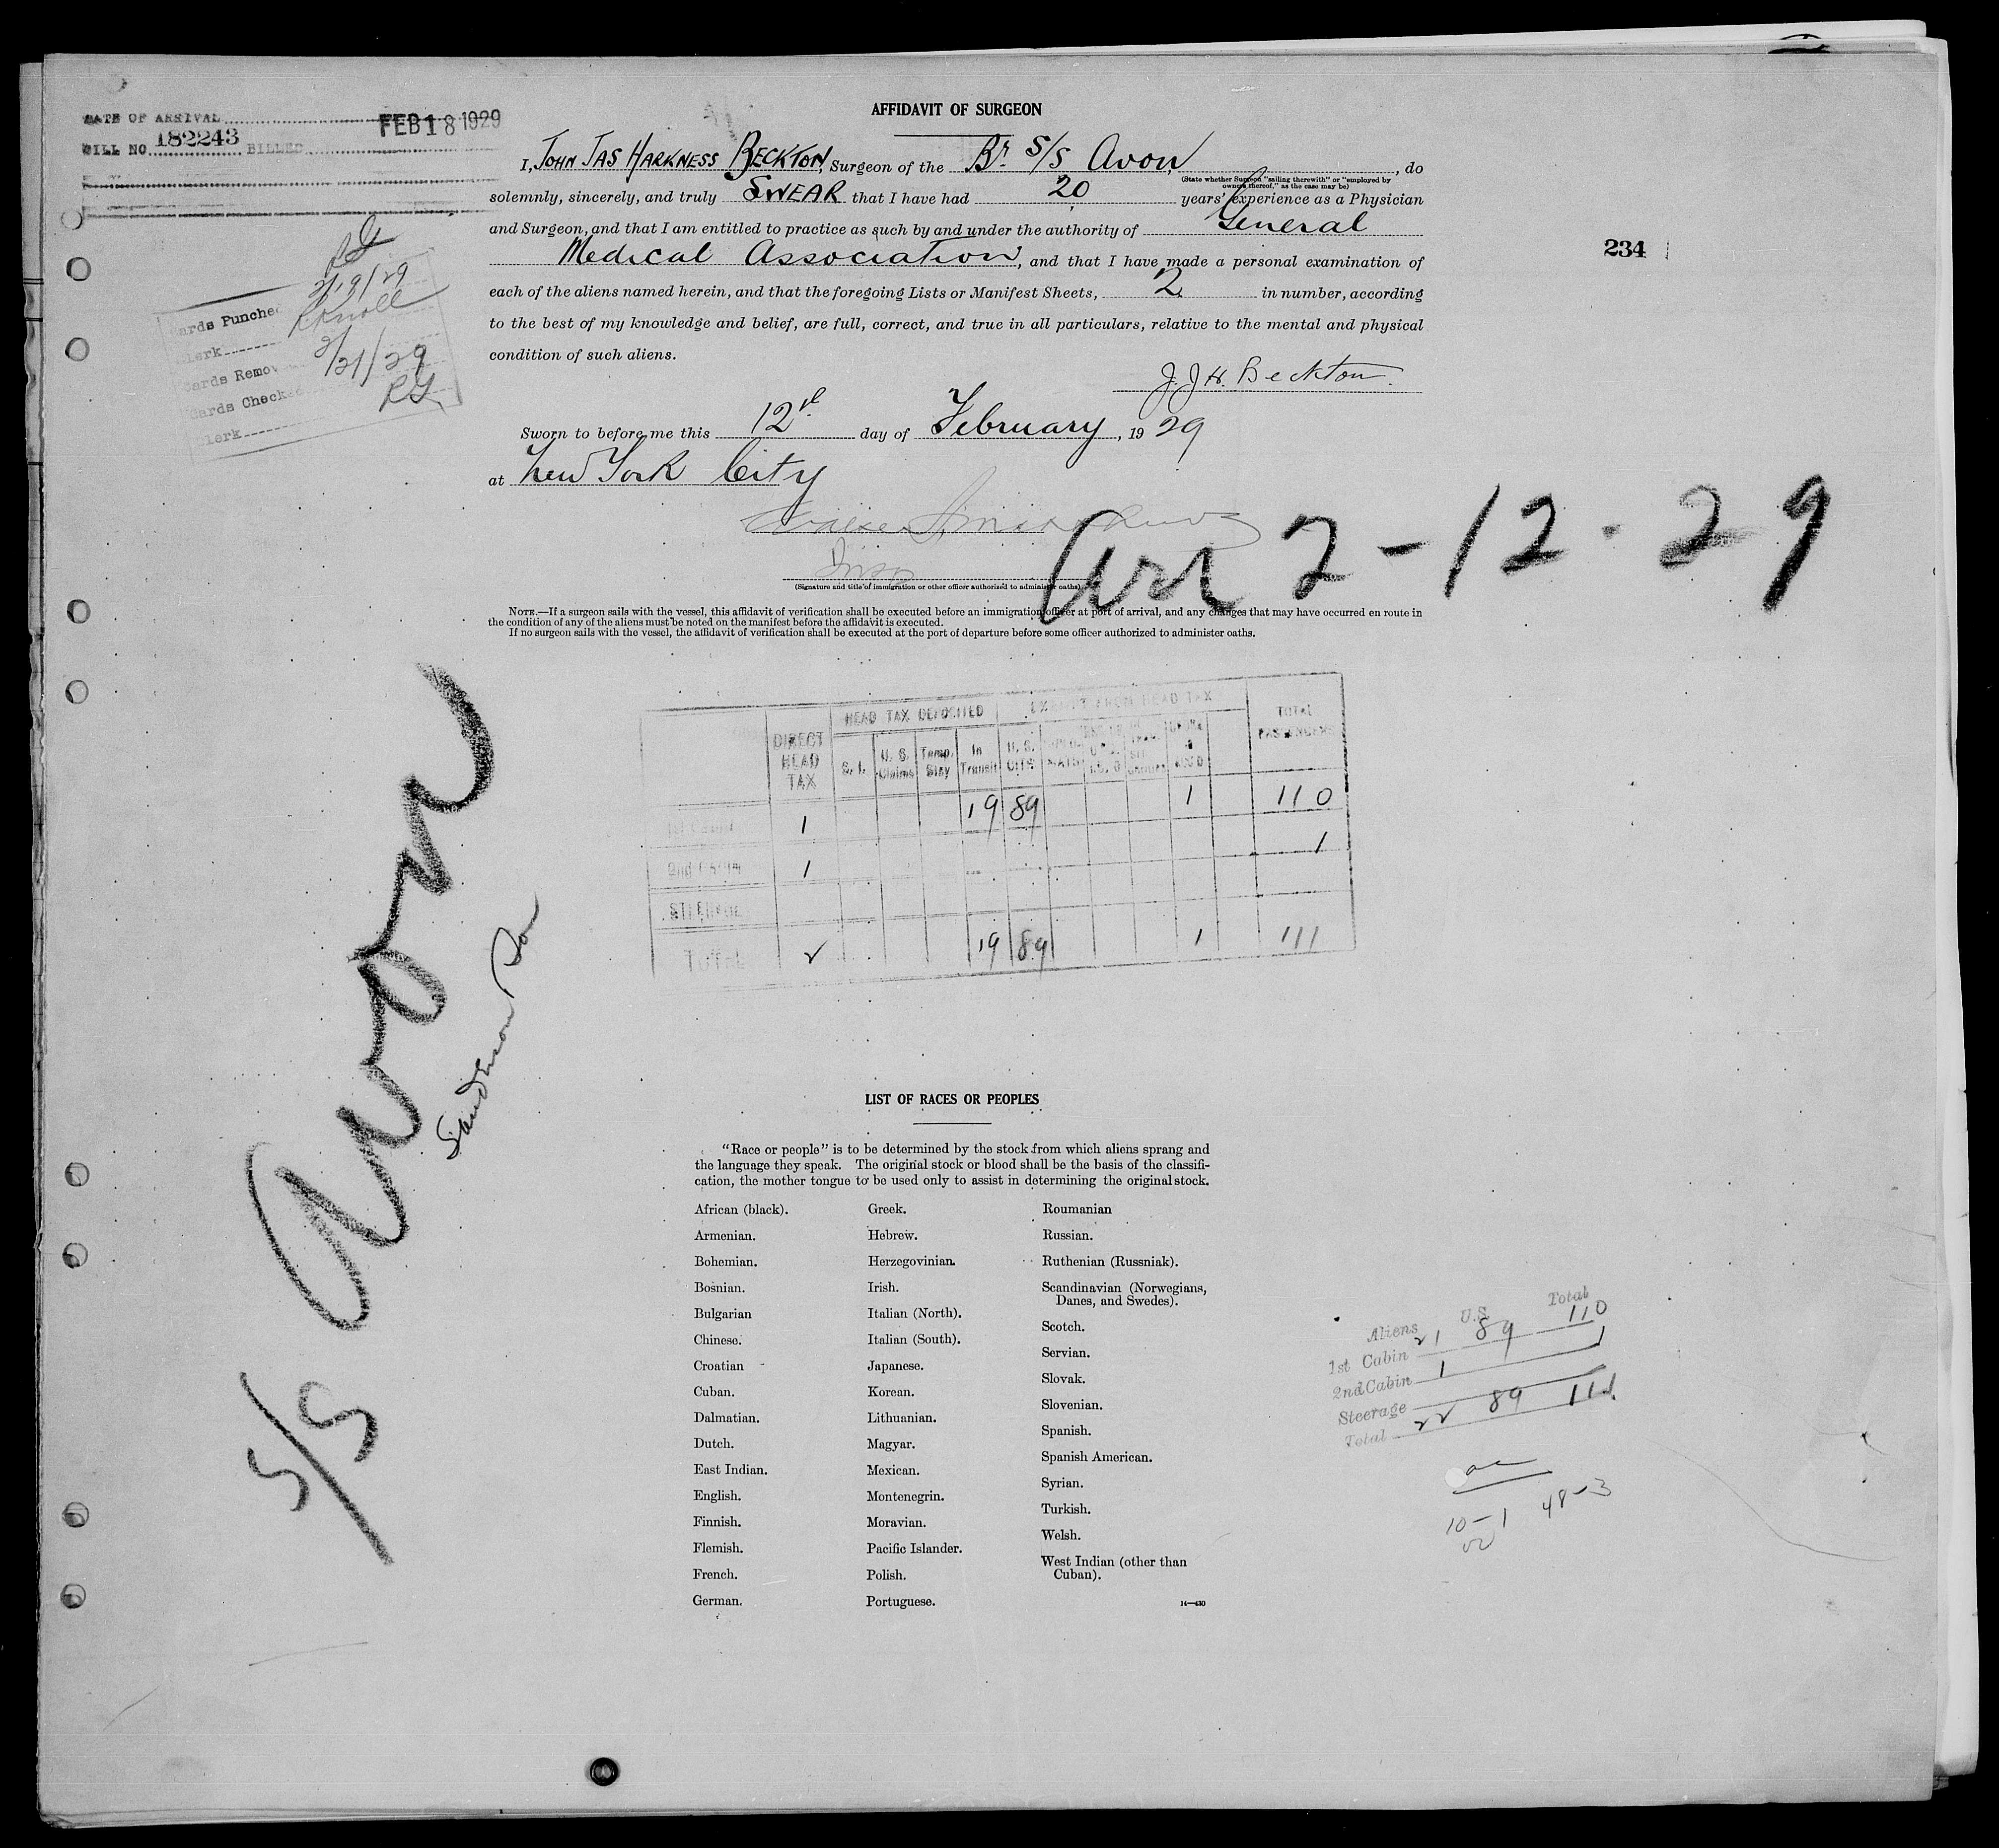 DATE OF ARRIVAL FEB 18 1929
BILL NO. 182243 BILLED
AFFIDAVIT OF SURGEON
I, JOHN JAS HARKNESS BECKTON, Surgeon of the Br. S/S Avon, do
(State whether Surgeon "sailing therewith" or "employed by
owners thereof," as the case may be)
solemnly, sincerely, and truly SWEAR that I have had 20 years' experience as a Physician
and Surgeon, and that I am entitled to practice as such by and under the authority of General
Medical Association, and that I have made a personal examination of
each of the aliens named herein, and that the foregoing Lists or Manifest Sheets, 2 in number, according
to the best of my knowledge and belief, are full, correct, and true in all particulars, relative to the mental and physical
condition of such aliens.
J. J. H. Beckton.
234
2/19/29
Cards Punched
Clerk
2/21/29
Cards Removed
Cards Checked RG
Clerk
Sworn to before me this 12th day of February, 1929
at New York City
Insp
(Signature and title of immigration or other officer authorized to administer oaths)
Arr 2-12-29
NOTE.—If a surgeon sails with the vessel, this affidavit of verification shall be executed before an immigration officer at port of arrival, and any changes that may have occurred en route in
the condition of any of the aliens must be noted on the manifest before the affidavit is executed.
If no surgeon sails with the vessel, the affidavit of verification shall be executed at the port of departure before some officer authorized to administer oaths.
S/S Avon
Sanderson & Son
HEAD TAX DEPOSITED EXEMPT FROM HEAD TAX
DIRECT HEAD TAX S. I. U. S. Claims Temp. Stay In Transit U. S. CITS TOTAL PASSENGERS
1st Cabin 1 19 89 1 110
2nd Cabin 1 1
STEERAGE
TOTAL 2 19 89 1 111
LIST OF RACES OR PEOPLES
"Race or people" is to be determined by the stock from which aliens sprang and
the language they speak. The original stock or blood shall be the basis of the classifi-
cation, the mother tongue to be used only to assist in determining the original stock.
African (black).
Armenian.
Bohemian.
Bosnian.
Bulgarian
Chinese.
Croatian
Cuban.
Dalmatian.
Dutch.
East Indian.
English.
Finnish.
Flemish.
French.
German.
Greek.
Hebrew.
Herzegovinian.
Irish.
Italian (North).
Italian (South).
Japanese.
Korean.
Lithuanian.
Magyar.
Mexican.
Montenegrin.
Moravian.
Pacific Islander.
Polish.
Portuguese.
Roumanian
Russian.
Ruthenian (Russniak).
Scandinavian (Norwegians,
Danes, and Swedes).
Scotch.
Servian.
Slovak.
Slovenian.
Spanish.
Spanish American.
Syrian.
Turkish.
Welsh.
West Indian (other than
Cuban).
14—430
Aliens U.S. Total
1st Cabin 21 89 110
2nd Cabin 1 1
Steerage
Total 22 89 111
10-1 48-3